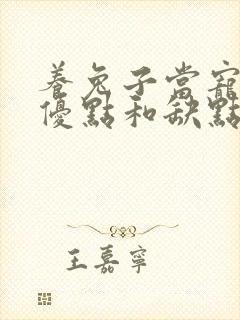 養兔子當寵
優點和缺點
王嘉寧